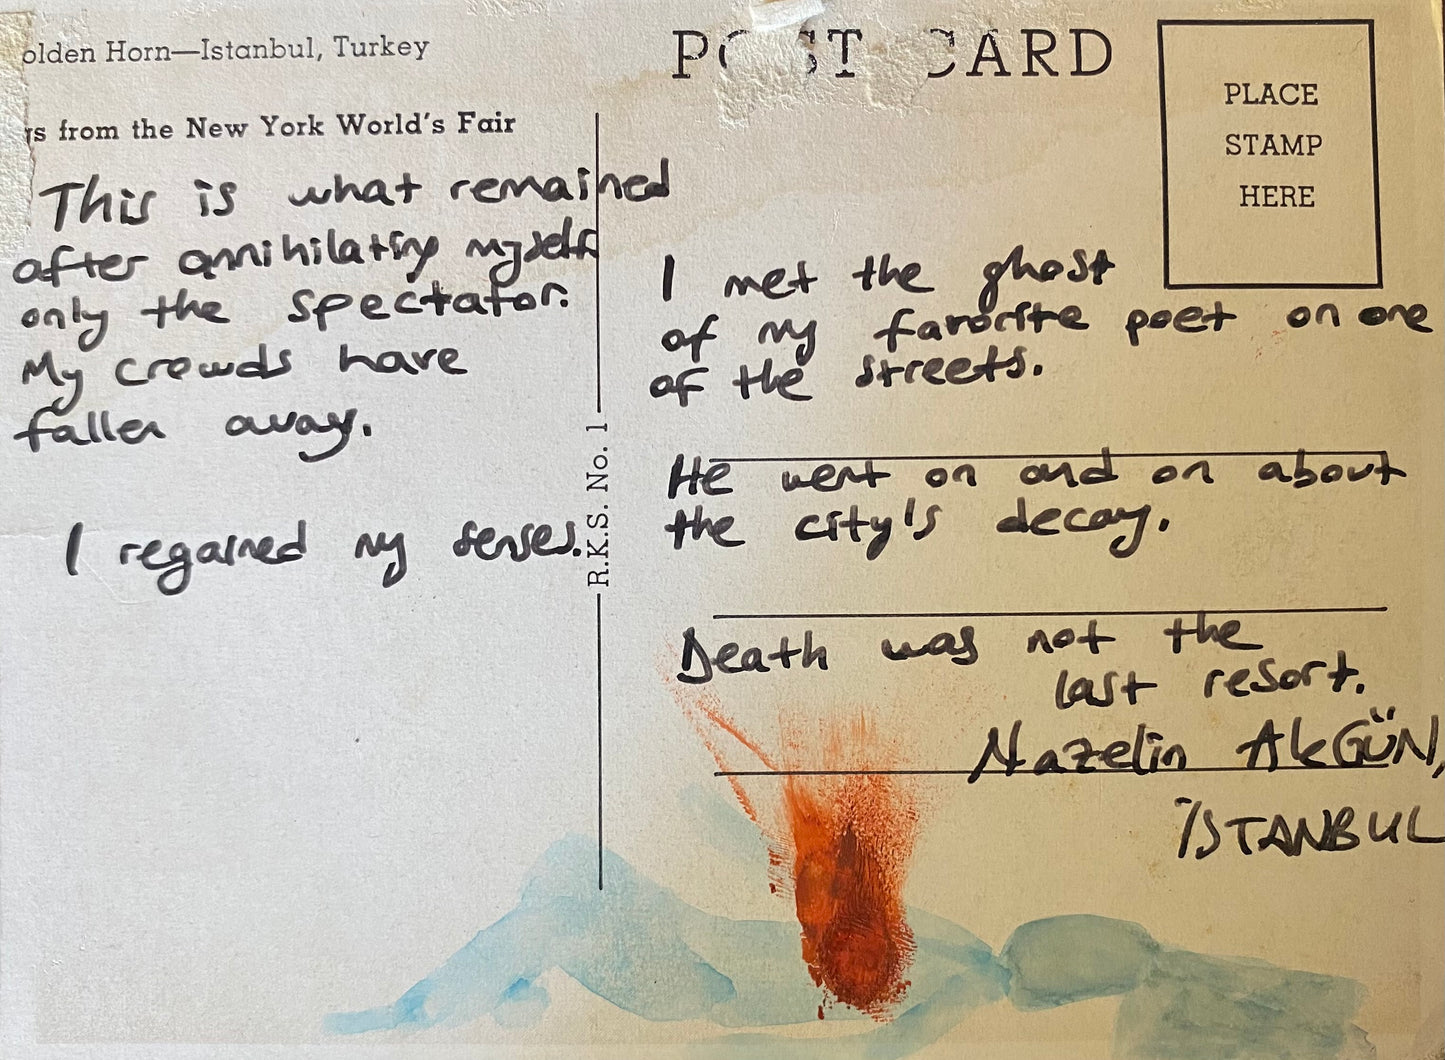 olden Horn—Istanbul, Turkey
s from the New York World's Fair
POST CARD
PLACE
STAMP
HERE
This is what remained
after annihilating myself
only the spectator.
My crowds have
fallen away.
I regained my senses.
R.K.S. No. 1
I met the ghost
of my favorite poet on one
of the streets.
He went on and on about
the city's decay.
Death was not the
last resort.
Nazelin AkGÜN,
İSTANBUL